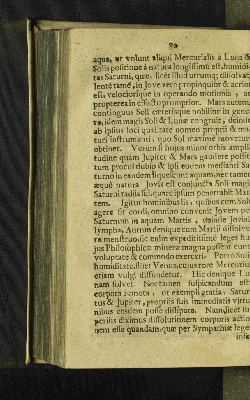 80
aqua, ut volunt aliqui Mercurialis à Luna &
Solis positione à natura longissime est, humidi
tas Saturni, quæ, licet illud utrumq; dissolvat,
lente tamè, in Jove vero propinquior & acrior
est, velociorique in operando motionis, ac
propterea in effectu promptior. Mars autem
contiguus Soli cæterisque nobilior in gene-
re, idem magis Soli & Lunæ congruit, deinde
ab ipsius loci qualitate nomen proprii & ma-
turi instrumenti, quo Sol maxime movetur
obtinet. Verum si hujus minorbis ampli
tudine quam Jupiter & Mars gaudere possit
tum procul dubio & ipsi eodem mediante Sa
turno in eandem liquescunt aquam, nec tamen
æque natura Jovis est conjuncta Soli magis
Saturni radiis sui, ejus ipsum penetrabit Mar
tem. Igitur hominibus iis, quibus cum Sole
agere fit cordi, omnino convenit Jovem per
Saturnum in aquam Martis, deinde Jovini
lympha, Aurum denique cum Martii dissolve
re menstruo, sic enim expeditissime leges hu
jus Philosophicæ mineræ magna possent cum
voluptate & commodo exerceri. Porro Solis
humiditate, liber Venus, ejusque Mercurius
etiam vulgi diffunditur. Hic denique Lu
nam solvet. Nec tamen suspicandum est
corpora remota, ut exempli gratia: Satur
nus & Jupiter, propriis suis immediatis virtu
tibus eosdem posse dissipare. Nam licet su
perius diximus dissolutionem corporis actio
nem esse quandam quæ per Sympathiæ lege